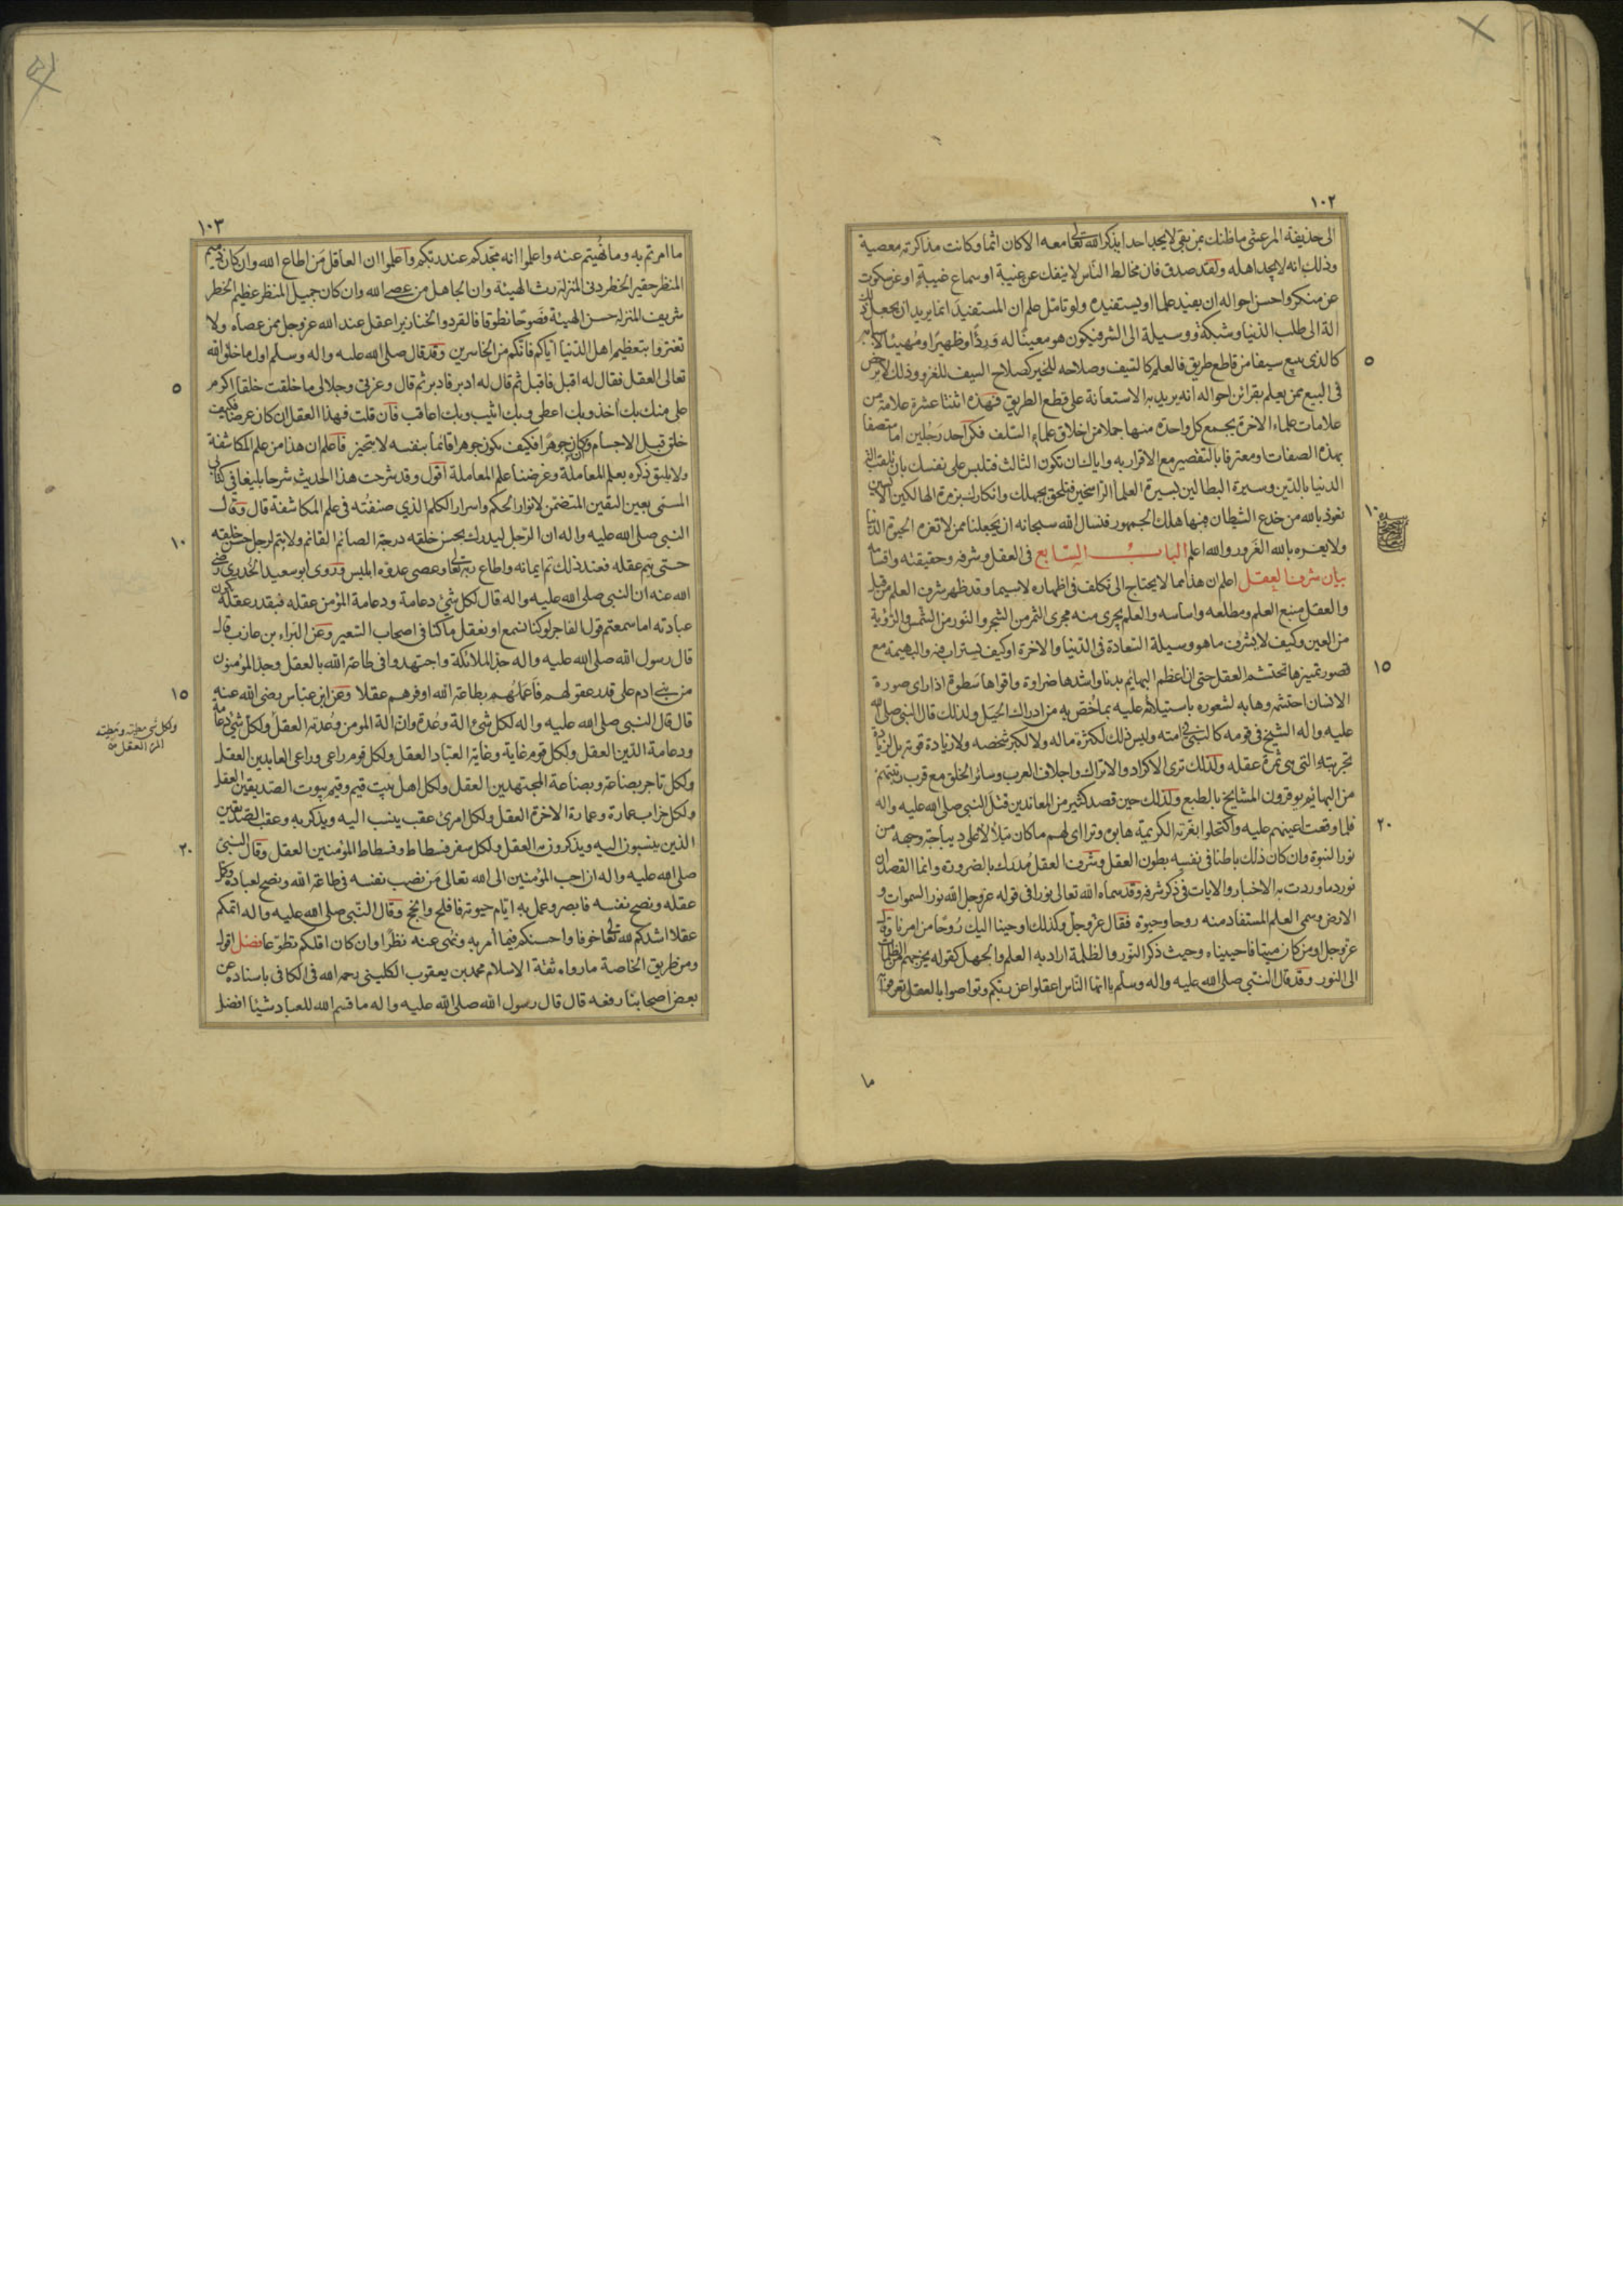 ١٠٢
الى حذيفة المرعشى ما ظنك بمن بقى لا يجد احدا يذكر الله تعالى معه الا كان اثما وكانت مذاكرته معصية
وذلك انه لا يجد اهله ولقد صدق فان مخالط الناس لا ينفك عن غيبة او سماع غيبة او عن سكوت
عن منكر واحسن احواله ان يفيد علما او يستفيده ولو تامل علم ان المستفيد انما يريد ان يجعل ذلك
الة الى طلب الدنيا وشبكة ووسيلة الى الشر فيكون هو معينا له وردءا وظهيرا ومهيئا لاسبابه
كالذى يبيع سيفا من قاطع طريق فالعلم كالسيف وصلاحه للخير كصلاح السيف للغزو وذلك لا يرخص
٥
فى البيع ممن يعلم بقرائن احواله انه يريد به الاستعانة على قطع الطريق فهذه اثنتا عشرة علامة من
علامات علماء الاخرة يجمع كل واحدة منها جملا من اخلاق علماء السلف فكن احد رجلين اما متصفا
بهذه الصفات او معترفا بالتقصير مع الاقرار به واياك ان تكون الثالث فتلبس على نفسك بان تلقب الة
الدنيا بالدين وسيرة البطالين بسيرة العلماء الراسخين فتلحق بجهلك وانكارك بزمرة الهالكين الايسين
نعوذ بالله من خدع الشيطان فبها هلك الجمهور فنسال الله سبحانه ان يجعلنا ممن لا تغره الحيوة الدنيا
١٠
ولا يغره بالله الغرور والله اعلم الباب السابع فى العقل وشرفه وحقيقته واقسامه
بيان شرف العقل اعلم ان هذا مما لا يحتاج الى تكلف فى اظهاره لا سيما وقد ظهر شرف العلم من قبل
والعقل منبع العلم ومطلعه واساسه والعلم يجرى منه مجرى الثمر من الشجر والنور من الشمس والرؤية
من العين وكيف لا يشرف ما هو وسيلة السعادة فى الدنيا والاخرة او كيف يستراب فيه والبهيمة مع
قصور تمييزها تحتشم العقل حتى ان اعظم البهائم بدنا واشدها ضراوة واقواها سطوة اذا راى صورة
١٥
الانسان احتشمه وهابه لشعوره باستيلائه عليه بما خص به من ادراك الحيل ولذلك قال النبى صلى الله
عليه واله الشيخ فى قومه كالنبى فى امته وليس ذلك لكثرة ماله ولا لكبر شخصه ولا زيادة قوته بل لزيادة
تجربته التى هى ثمرة عقله ولذلك ترى الاكراد والاتراك واجلاف العرب وسائر الخلق مع قرب رتبتهم
من البهائم يوقرون المشايخ بالطبع ولذلك حين قصد كثير من المعاندين قتل النبى صلى الله عليه واله
فلما وقعت اعينهم عليه واكتحلوا بغرته الكريمة هابوه وتراءى لهم ما كان يتلألأ على ديباجة وجهه من
٢٠
نور النبوة وان كان ذلك باطنا فى نفسه بطون العقل وشرف العقل مدرك بالضرورة وانما القصد ان
نورد ما وردت به الاخبار والايات فى ذكر شرفه وقد سماه الله تعالى نورا فى قوله عز وجل الله نور السموات و
الارض وسمى العلم المستفاد منه روحا وحيوة فقال عز وجل وكذلك اوحينا اليك روحا من امرنا وقال
عز وجل او من كان ميتا فاحييناه وحيث ذكر النور والظلمة اراد به العلم والجهل كقوله يخرجهم من الظلمات
الى النور وقد قال النبى صلى الله عليه واله وسلم يا ايها الناس اعقلوا عن ربكم وتواصوا بالعقل تعرفوا به
ما
١٠٣
ما امرتم به وما نهيتم عنه واعلموا انه مجدكم عند ربكم واعلموا ان العاقل من اطاع الله وان كان دميم
المنظر حقير الخطر دنى المنزلة رث الهيئة وان الجاهل من عصى الله وان كان جميل المنظر عظيم الخطر
شريف المنزلة حسن الهيئة فصوحا نطوقا فالقردة والخنازير اعقل عند الله عز وجل ممن عصاه ولا
تغتروا بتعظيم اهل الدنيا اياكم فانكم من الخاسرين وقد قال صلى الله عليه واله وسلم اول ما خلق الله
تعالى العقل فقال له اقبل فاقبل ثم قال له ادبر فادبر ثم قال وعزتى وجلالى ما خلقت خلقا اكرم
٥
على منك بك اخذ وبك اعطى وبك اثيب وبك اعاقب فان قلت فهذا العقل ان كان عرضا فكيف
خلق قبل الاجسام وان كان جوهرا فكيف يكون جوهرا قائما بنفسه لا يتحيز فاعلم ان هذا من علم المكاشفة
ولا يليق ذكره بعلم المعاملة وغرضنا علم المعاملة اقول وقد شرحت هذا الحديث شرحا بليغا فى كتابى
المسمى بعين اليقين المتضمن لانوار الحكم واسرار الكلم الذي صنفته فى علم المكاشفة قال وقال
النبى صلى الله عليه واله ان الرجل ليدرك بحسن خلقه درجة الصائم القائم ولا يتم لرجل حسن خلقه
١٠
حتى يتم عقله فعند ذلك تم ايمانه واطاع ربه تعالى وعصى عدوه ابليس وروى ابو سعيد الخدرى رضى
الله عنه ان النبى صلى الله عليه واله قال لكل شئ دعامة ودعامة المؤمن عقله فبقدر عقله تكون
عبادته اما سمعتم قول الفاجر لو كنا نسمع او نعقل ما كنا فى اصحاب السعير وعن البراء بن عازب قال
قال رسول الله صلى الله عليه واله جد الملائكة واجتهدوا فى طاعة الله بالعقل وجد المؤمنون
من بنى ادم على قدر عقولهم فاعملهم بطاعة الله اوفرهم عقلا وعن ابن عباس رضى الله عنه
١٥
قال قال النبى صلى الله عليه واله لكل شئ الة وعدة وان الة المومن وعدته العقل ولكل شئ دعامة
ودعامة الدين العقل ولكل قوم غاية وغاية العباد العقل ولكل قوم راعى وراعى العابدين العقل
ولكل شئ مطية ومطية
المرء العقل
ولكل تاجر بضاعة وبضاعة المجتهدين العقل ولكل اهل بيت قيم وقيم بيوت الصديقين العقل
ولكل خراب عمارة وعمارة الاخرة العقل ولكل امرئ عقب ينسب اليه ويذكر به وعقب الصديقين
الذين ينسبون اليه ويذكرون به العقل ولكل سفر فسطاط وفسطاط المؤمنين العقل وقال النبى
٢٠
صلى الله عليه واله ان احب المؤمنين الى الله تعالى من نصب نفسه فى طاعة الله ونصح لعباده وكمل
عقله ونصح نفسه فابصر وعمل به ايام حيوته فافلح وانجح وقال النبى صلى الله عليه واله اتمكم
عقلا اشدكم لله تعالى خوفا واحسنكم فيما أمر به ونهى عنه نظرا وان كان اقلكم تطوعا فصل اقول
ومن طريق الخاصة ما رواه ثقة الاسلام محمد بن يعقوب الكلينى رحمه الله فى الكافى باسناده عن
بعض اصحابنا رفعه قال قال رسول الله صلى الله عليه واله ما قسم الله للعباد شيئا افضل